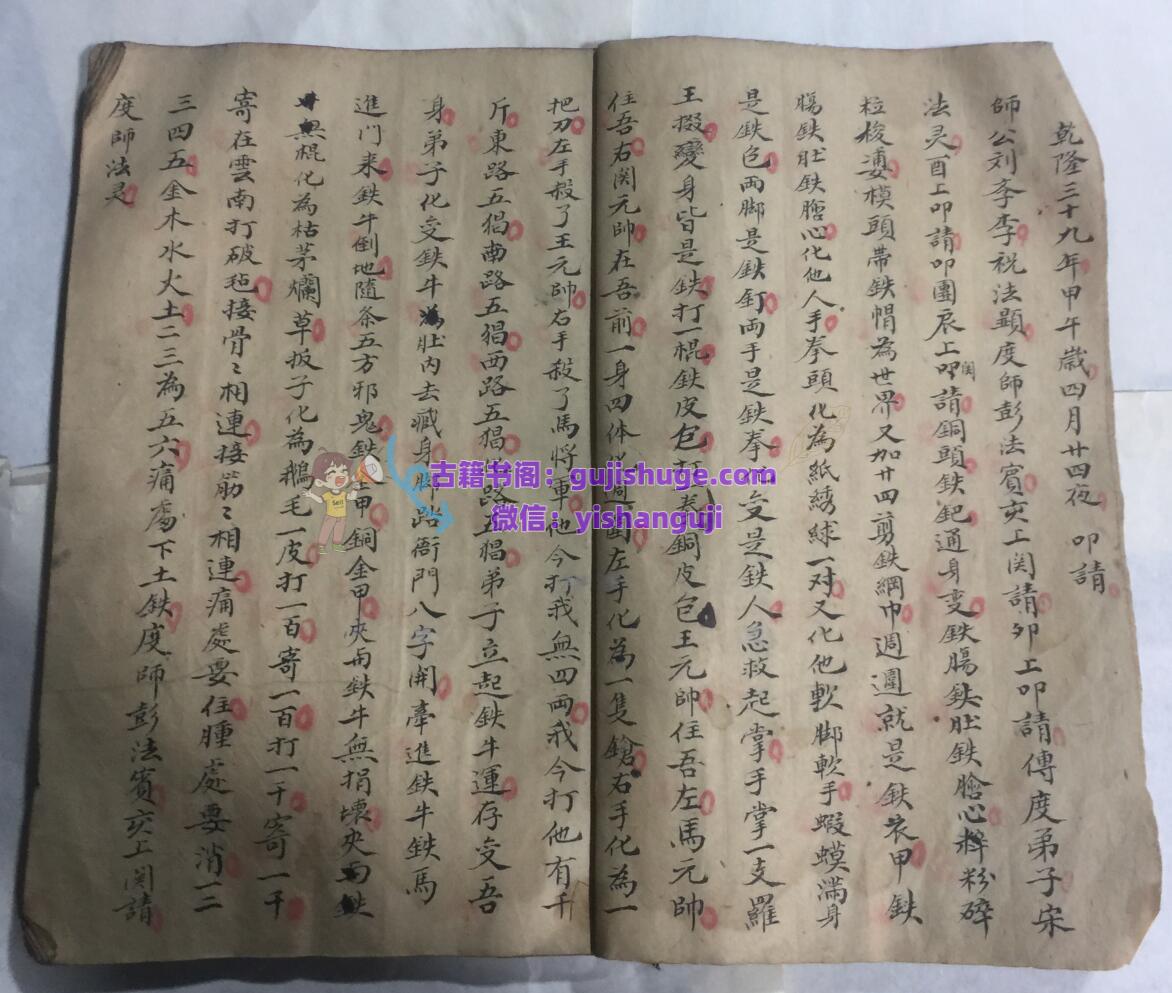 乾隆三十九年甲午歲四月廿四夜 叩請
師公刘李李祝法顯度師彭法賓亥上関請卯上叩請傳度弟子宋
法灵酉上叩請叩團辰上叩関請銅頭鉄鈀通身変鉄腸鉄肚鉄膽心粹粉碎
粒梭溇模頭帶鉄帽為世界又加廿四剪鉄綱巾週圍就是鉄衣甲鉄
腸鉄肚鉄膽心化他人手拳頭化為紙綉綵一对又化他軟脚軟手蝦蟆滿身
是鉄包两脚是鉄釘両手是鉄拳変是鉄人急救起掌手掌一支羅
王掇變身皆是鉄打一棍鉄皮包打銅皮包王元帥住吾左馬元帥
住吾右関元帥在吾前一身四体左手化為一隻鎗右手化為一
把刀左手殺了王元帥右手殺了馬將軍他今打我無四両我今打他有千
斤東路五猖南路五猖西路五猖路五猖弟子立起鉄牛運存变吾
身弟子化变鉄牛肚內去藏身脚踏衙門八字開牽進鉄牛鉄馬
進門来鉄牛倒地隨条五方邪鬼鉄甲銅金甲夾両鉄牛無捐壊夾両鉄
牛無棍化為枯茅爛草扳子化為鵝毛一皮打一百寄一百打一千寄一千
寄在雲南打破毡接骨〻相連接筋〻相連痛處要住腫處要消一二
三四五金木水火土二三為五六痛處下土鉄度師彭法賓亥上関請
度師法灵
古籍书阁：gujishuge.com
微信：yishanguji